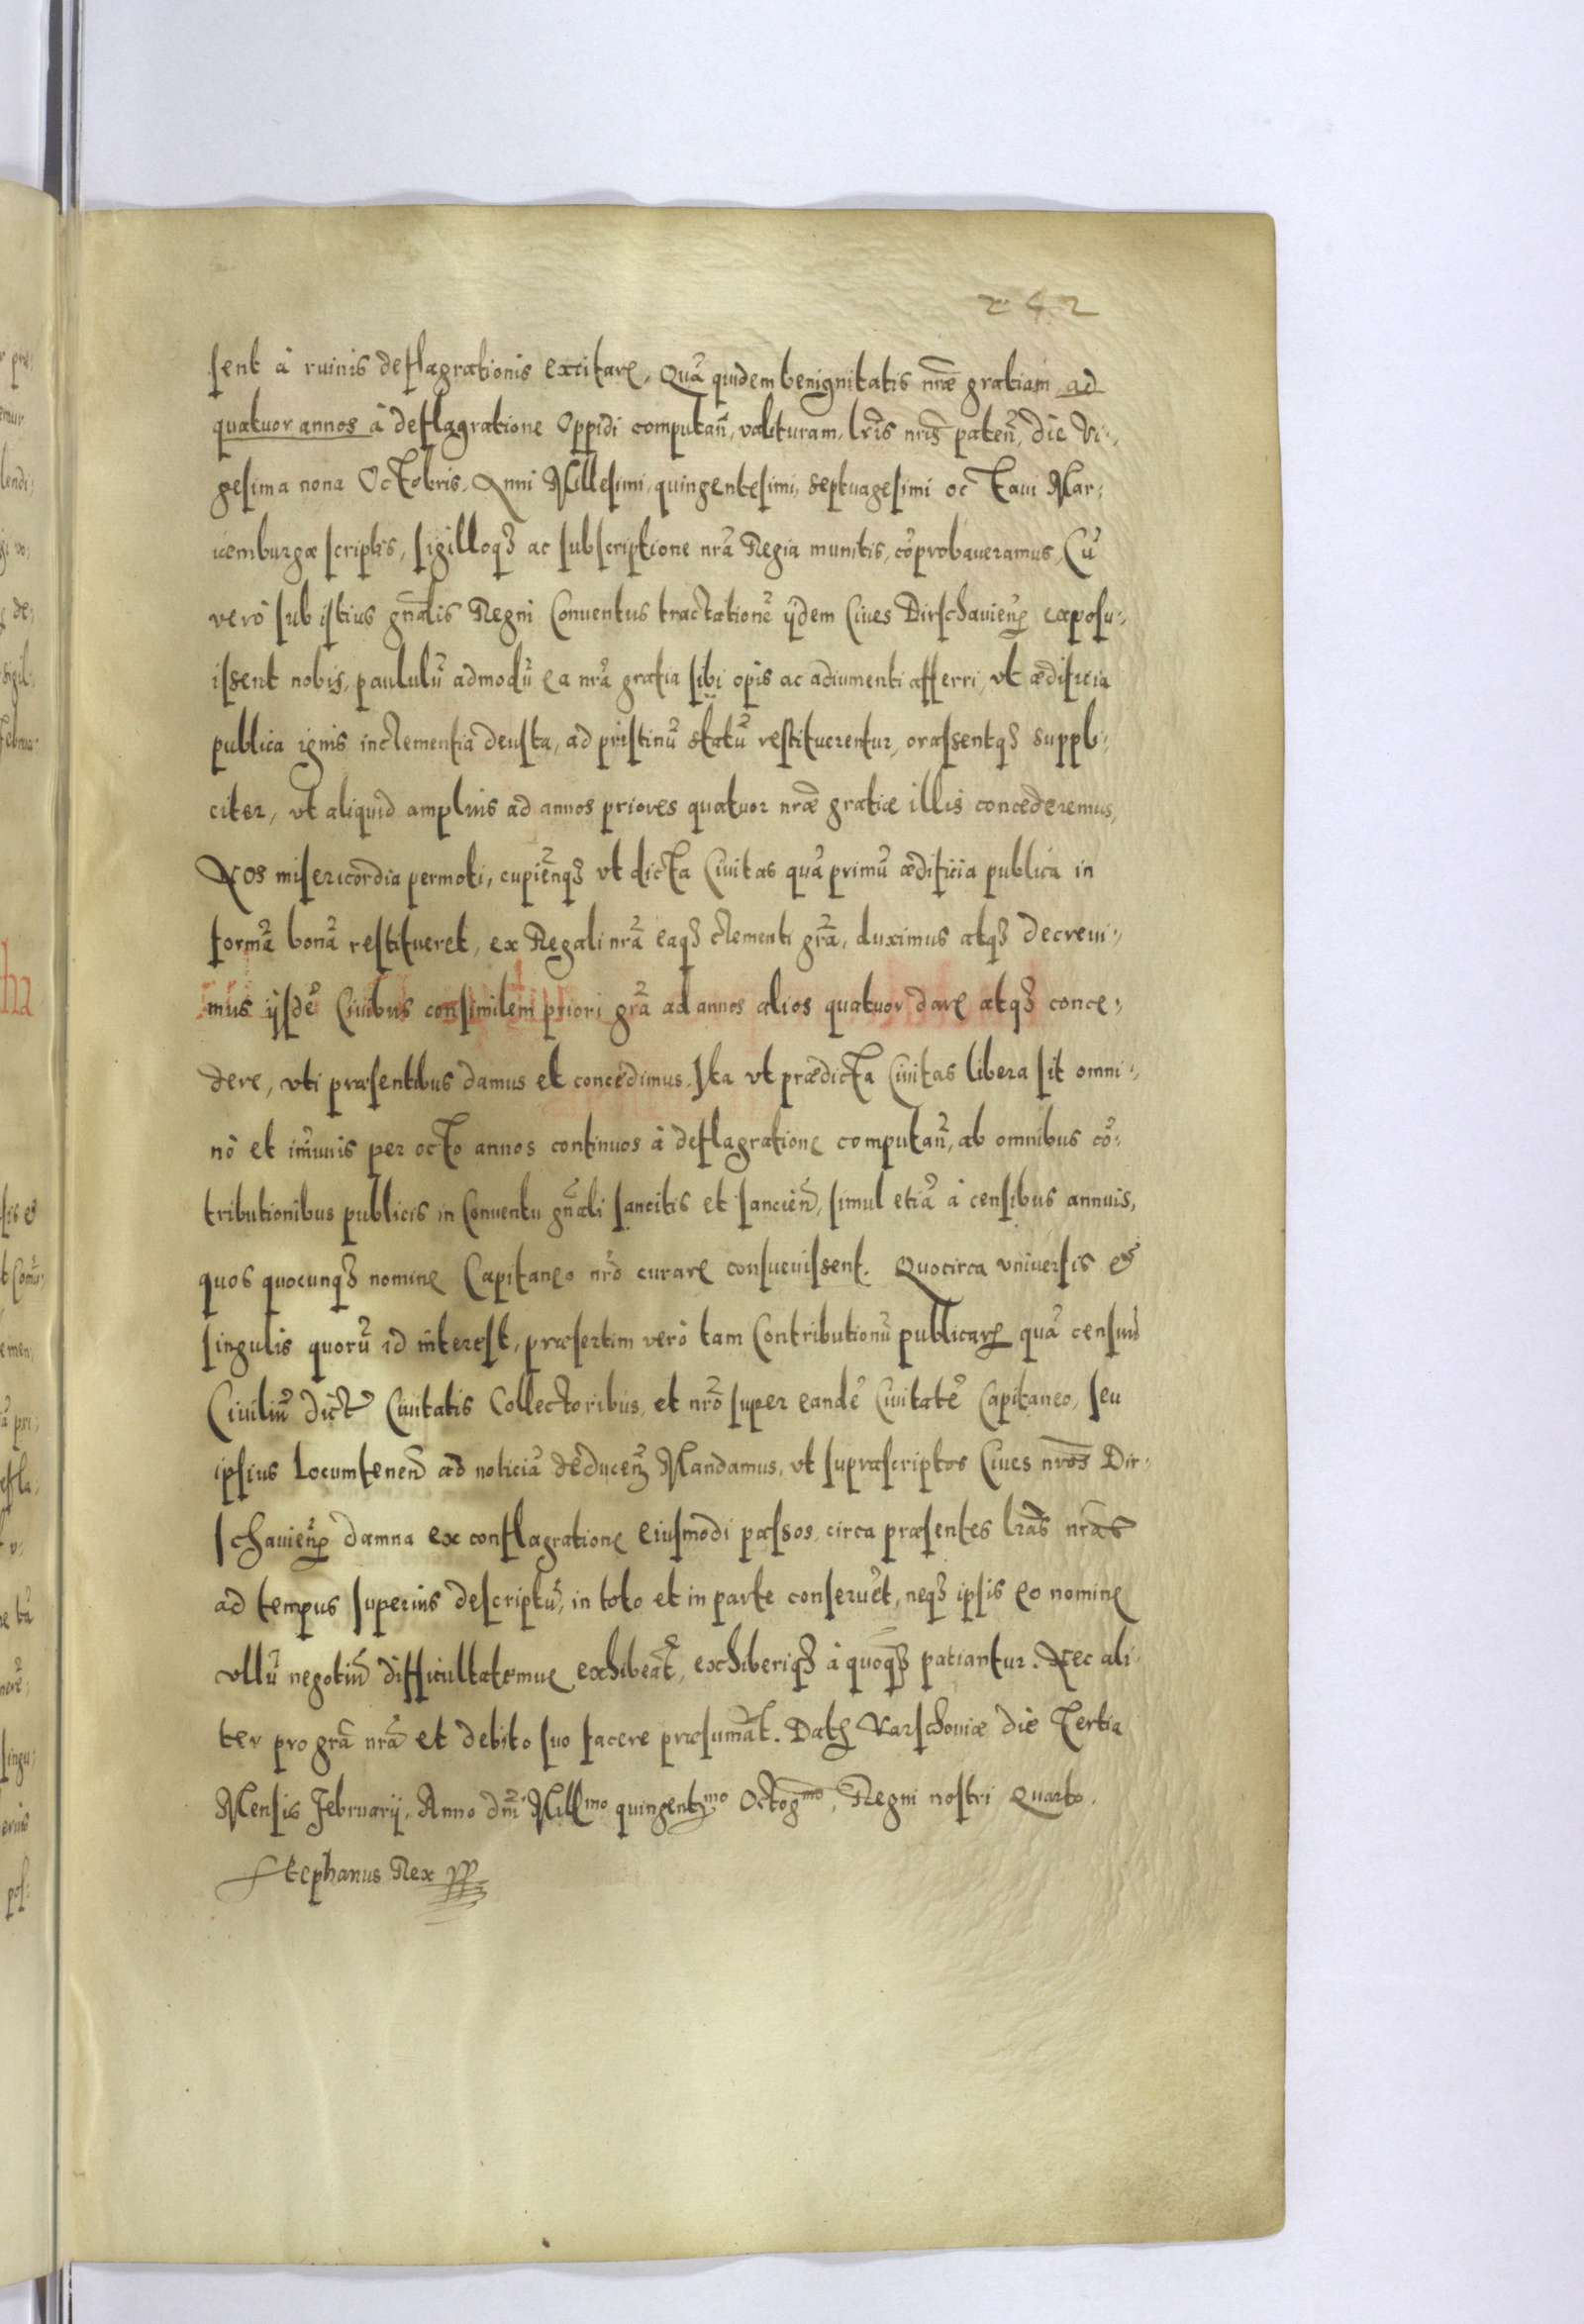 242
sent à ruinis deflagrationis excitare, Quã quidem benignitatis nr̃æ gratiam ad
quatuor annos à deflagratione Oppidi computañ, valituram, lr̃is nr̃is pateñ, die Vi-
gesima nona Octobris, Anni Millesimi, quingentesimi, septuagesimi octaui Mar-
iæmburgæ scriptis, sigilloqȝ ac subscriptione nr̃a Regia munitis, cõprobaueramus, Cũ
verò sub istius gñalis Regni Conuentus tractationẽ ijdem Ciues Dirschauieñ exposu-
issent nobis, paululũ admodũ ea nr̃a gratia sibi opis ac adiumenti afferri, vt ædificia
publica ignis inclementia deusta, ad pristinũ statũ restituerentur, orassentqȝ suppli-
citer, vt aliquid amplius ad annos priores quatuor nr̃æ gratiæ illis concederemus,
Nos misericordia permoti, cupieñqȝ vt dicta Ciuitas quã primũ ædificia publica in
formã bonã restitueret, ex Regali nr̃a eaqȝ clementi gr̃a, duximus atqȝ decreui-
mus ijsdẽ Ciuibus consimilem priori gr̃ã ad annos alios quatuor dare atqȝ conce-
dere, vti præsentibus damus et concedimus. Ita vt prædicta Ciuitas libera sit omni-
nò et im̃unis per octo annos continuos à deflagratione computañ, ab omnibus cõ-
tributionibus publicis in Conuentu gñali sancitis et sancieñ, simul etiã à censibus annuis,
quos quocunqȝ nomine Capitaneo nr̃o curare consueuissent. Quocirca vniuersis et
singulis quorũ id interest, præsertim verò tam Contributionũ publicarꝝ quã censuũ
Ciuiliũ dictæ Ciuitatis Collectoribus, et nr̃o super eandẽ Ciuitatẽ Capitaneo, seu
ipsius Locumteneñ ad noticiã deduceñ Mandamus, vt suprascriptos Ciues nr̃os Dir-
schauieñ damna ex conflagratione eiusmodi passos, circa præsentes lr̃as nr̃as
ad tempus superius descriptũ, in toto et in parte conseruẽt, neqȝ ipsis eo nomine
vllũ negotiũ difficultatemue exhibeãt, exhiberiqȝ à quoqȝ patiantur. Nec ali-
ter pro gr̃a nr̃a et debito suo facere præsumãt. Datꝭ Varschouiæ die Tertia
Mensis Februarij, Anno dñi Millmo quingentmo Octogmo, Regni nostri Quarto.
Stephanus Rex